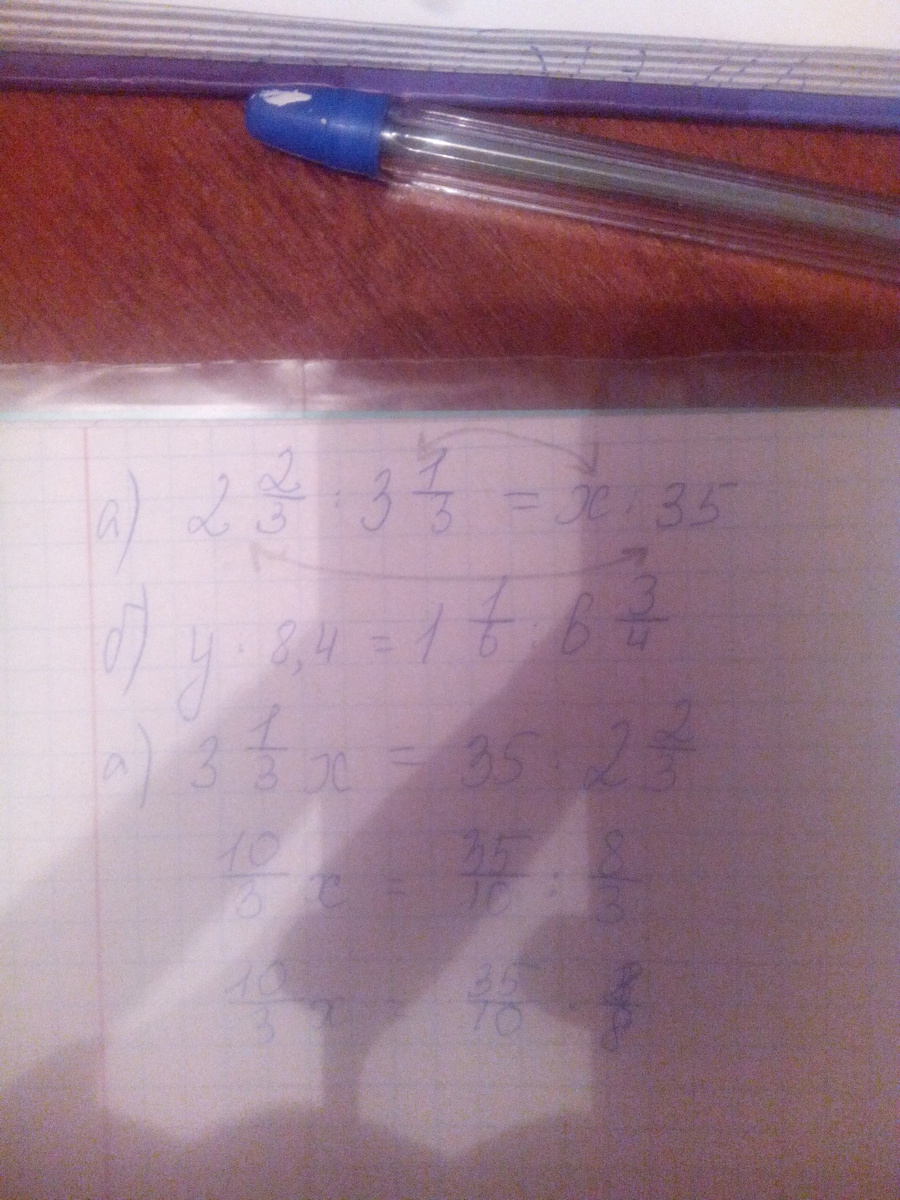 а) 2 2/3 : 3 1/3 = x : 35
б) y : 8,4 = 1 1/6 : 6 3/4
а) 3 1/3 x = 35 · 2 2/3
10/3 x = 35/10 : 8/3
10/3 x = 35/10 ·